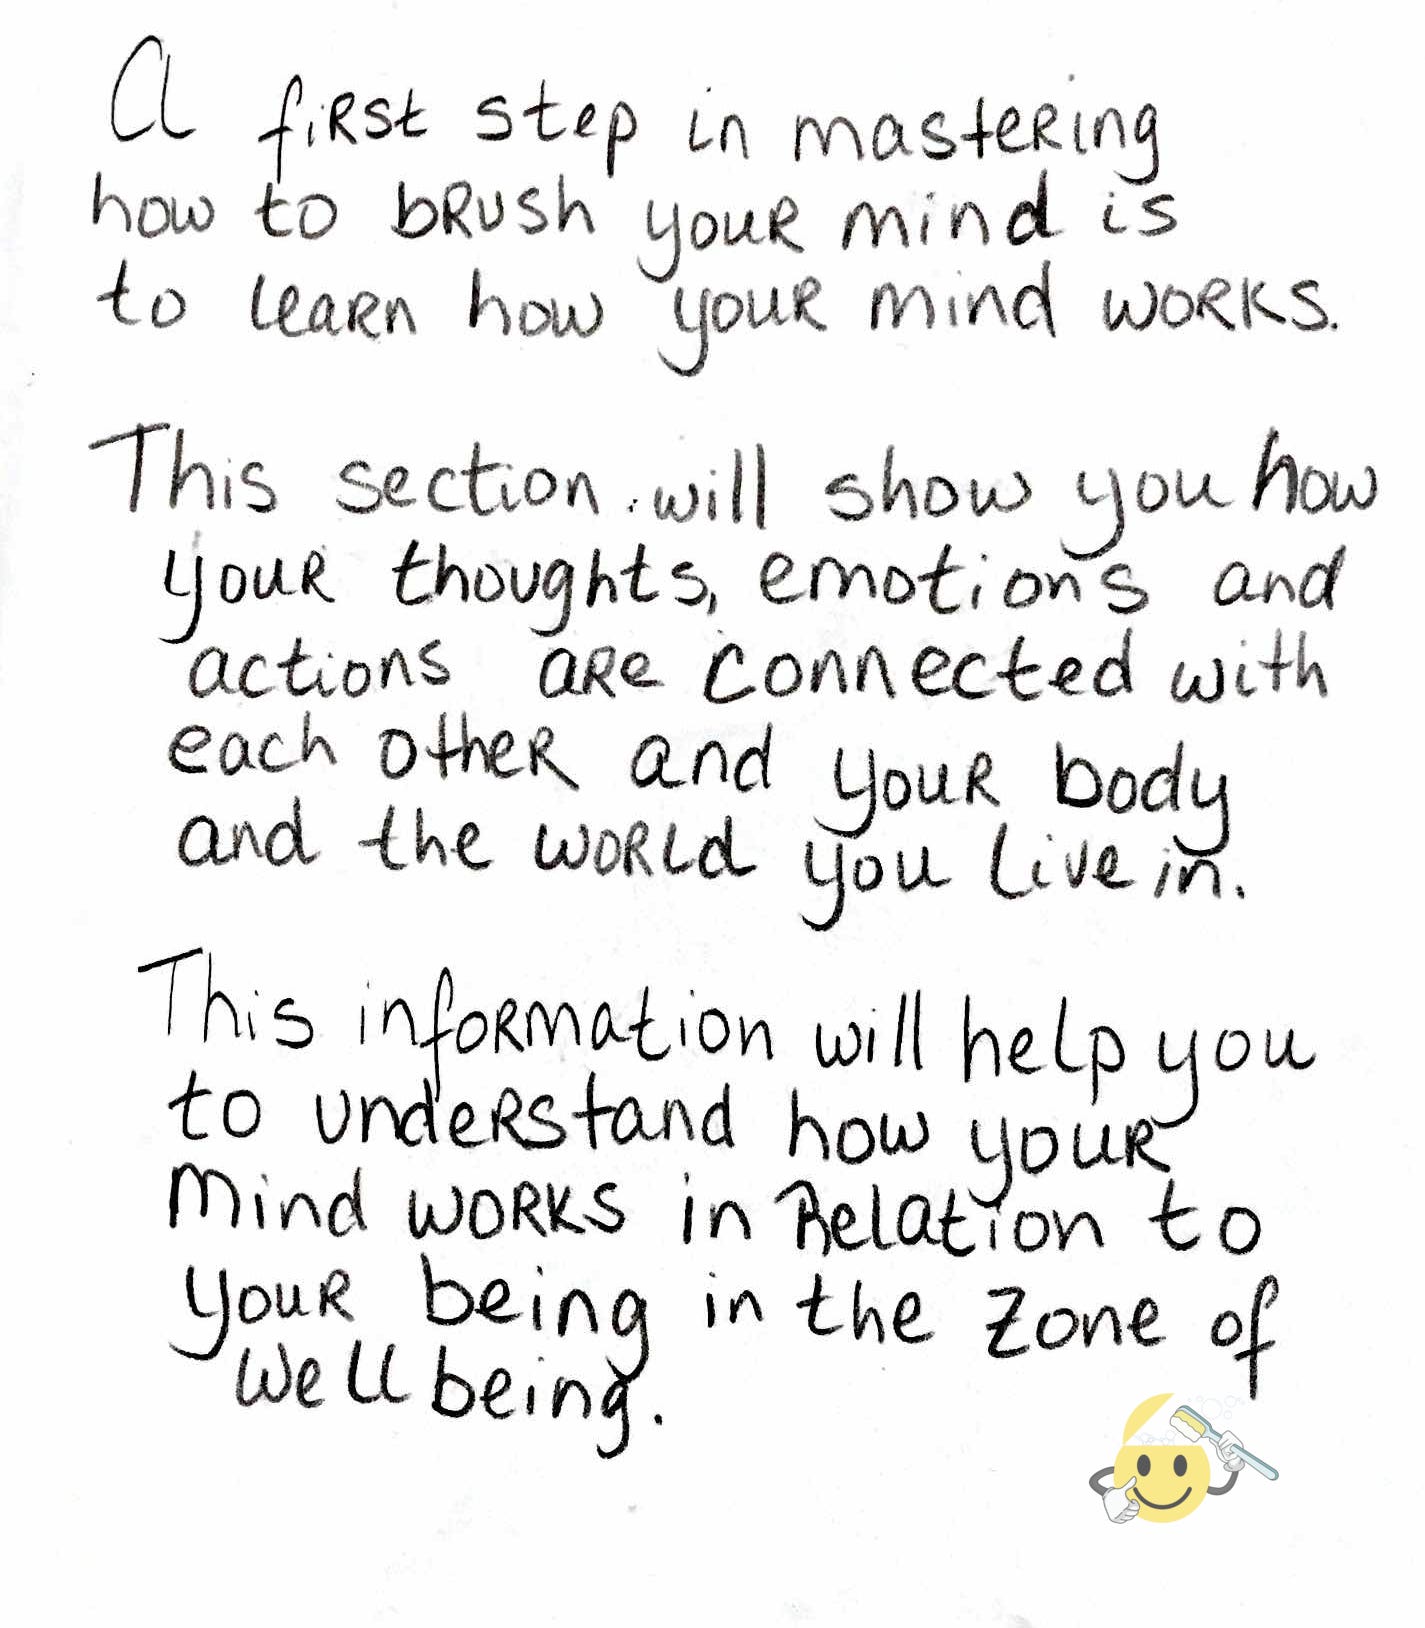 A first step in mastering
how to brush your mind is
to learn how your mind works.
This section will show you how
your thoughts, emotions and
actions are connected with
each other and your body
and the world you live in.
This information will help you
to understand how your
mind works in Relation to
your being in the zone of
Wellbeing.